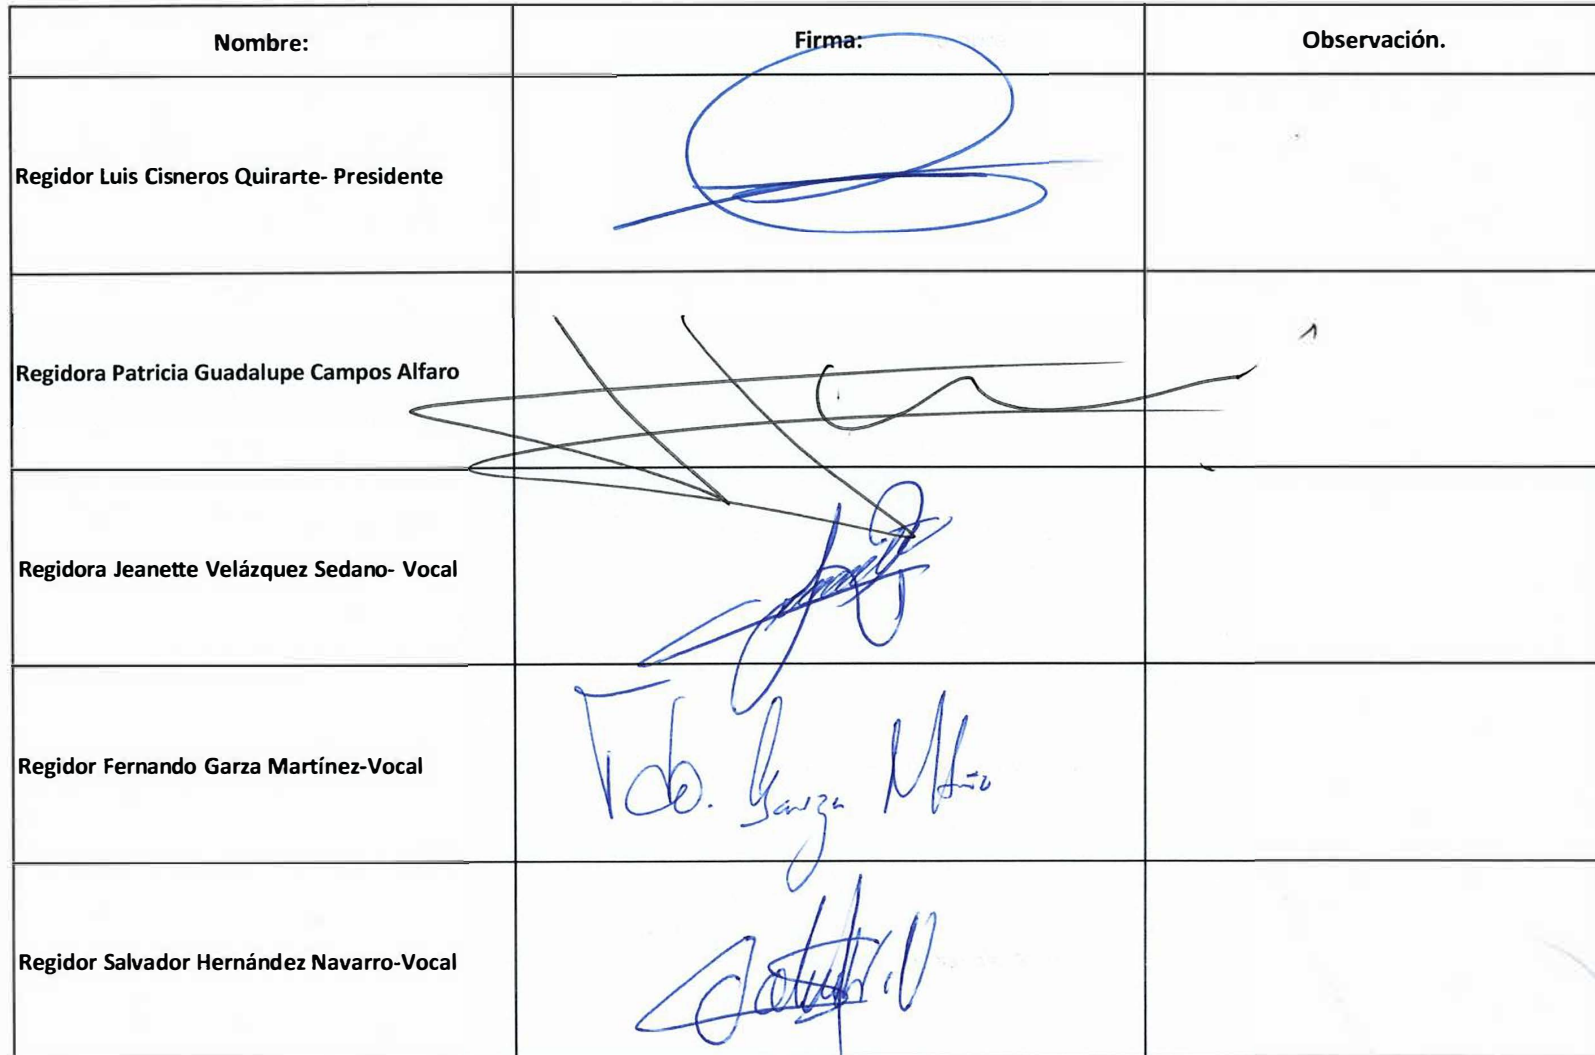 Nombre: Firma: Observación.
Regidor Luis Cisneros Quirarte- Presidente
Regidora Patricia Guadalupe Campos Alfaro
Regidora Jeanette Velázquez Sedano- Vocal
Regidor Fernando Garza Martínez-Vocal Fdo. Garza
Regidor Salvador Hernández Navarro-Vocal